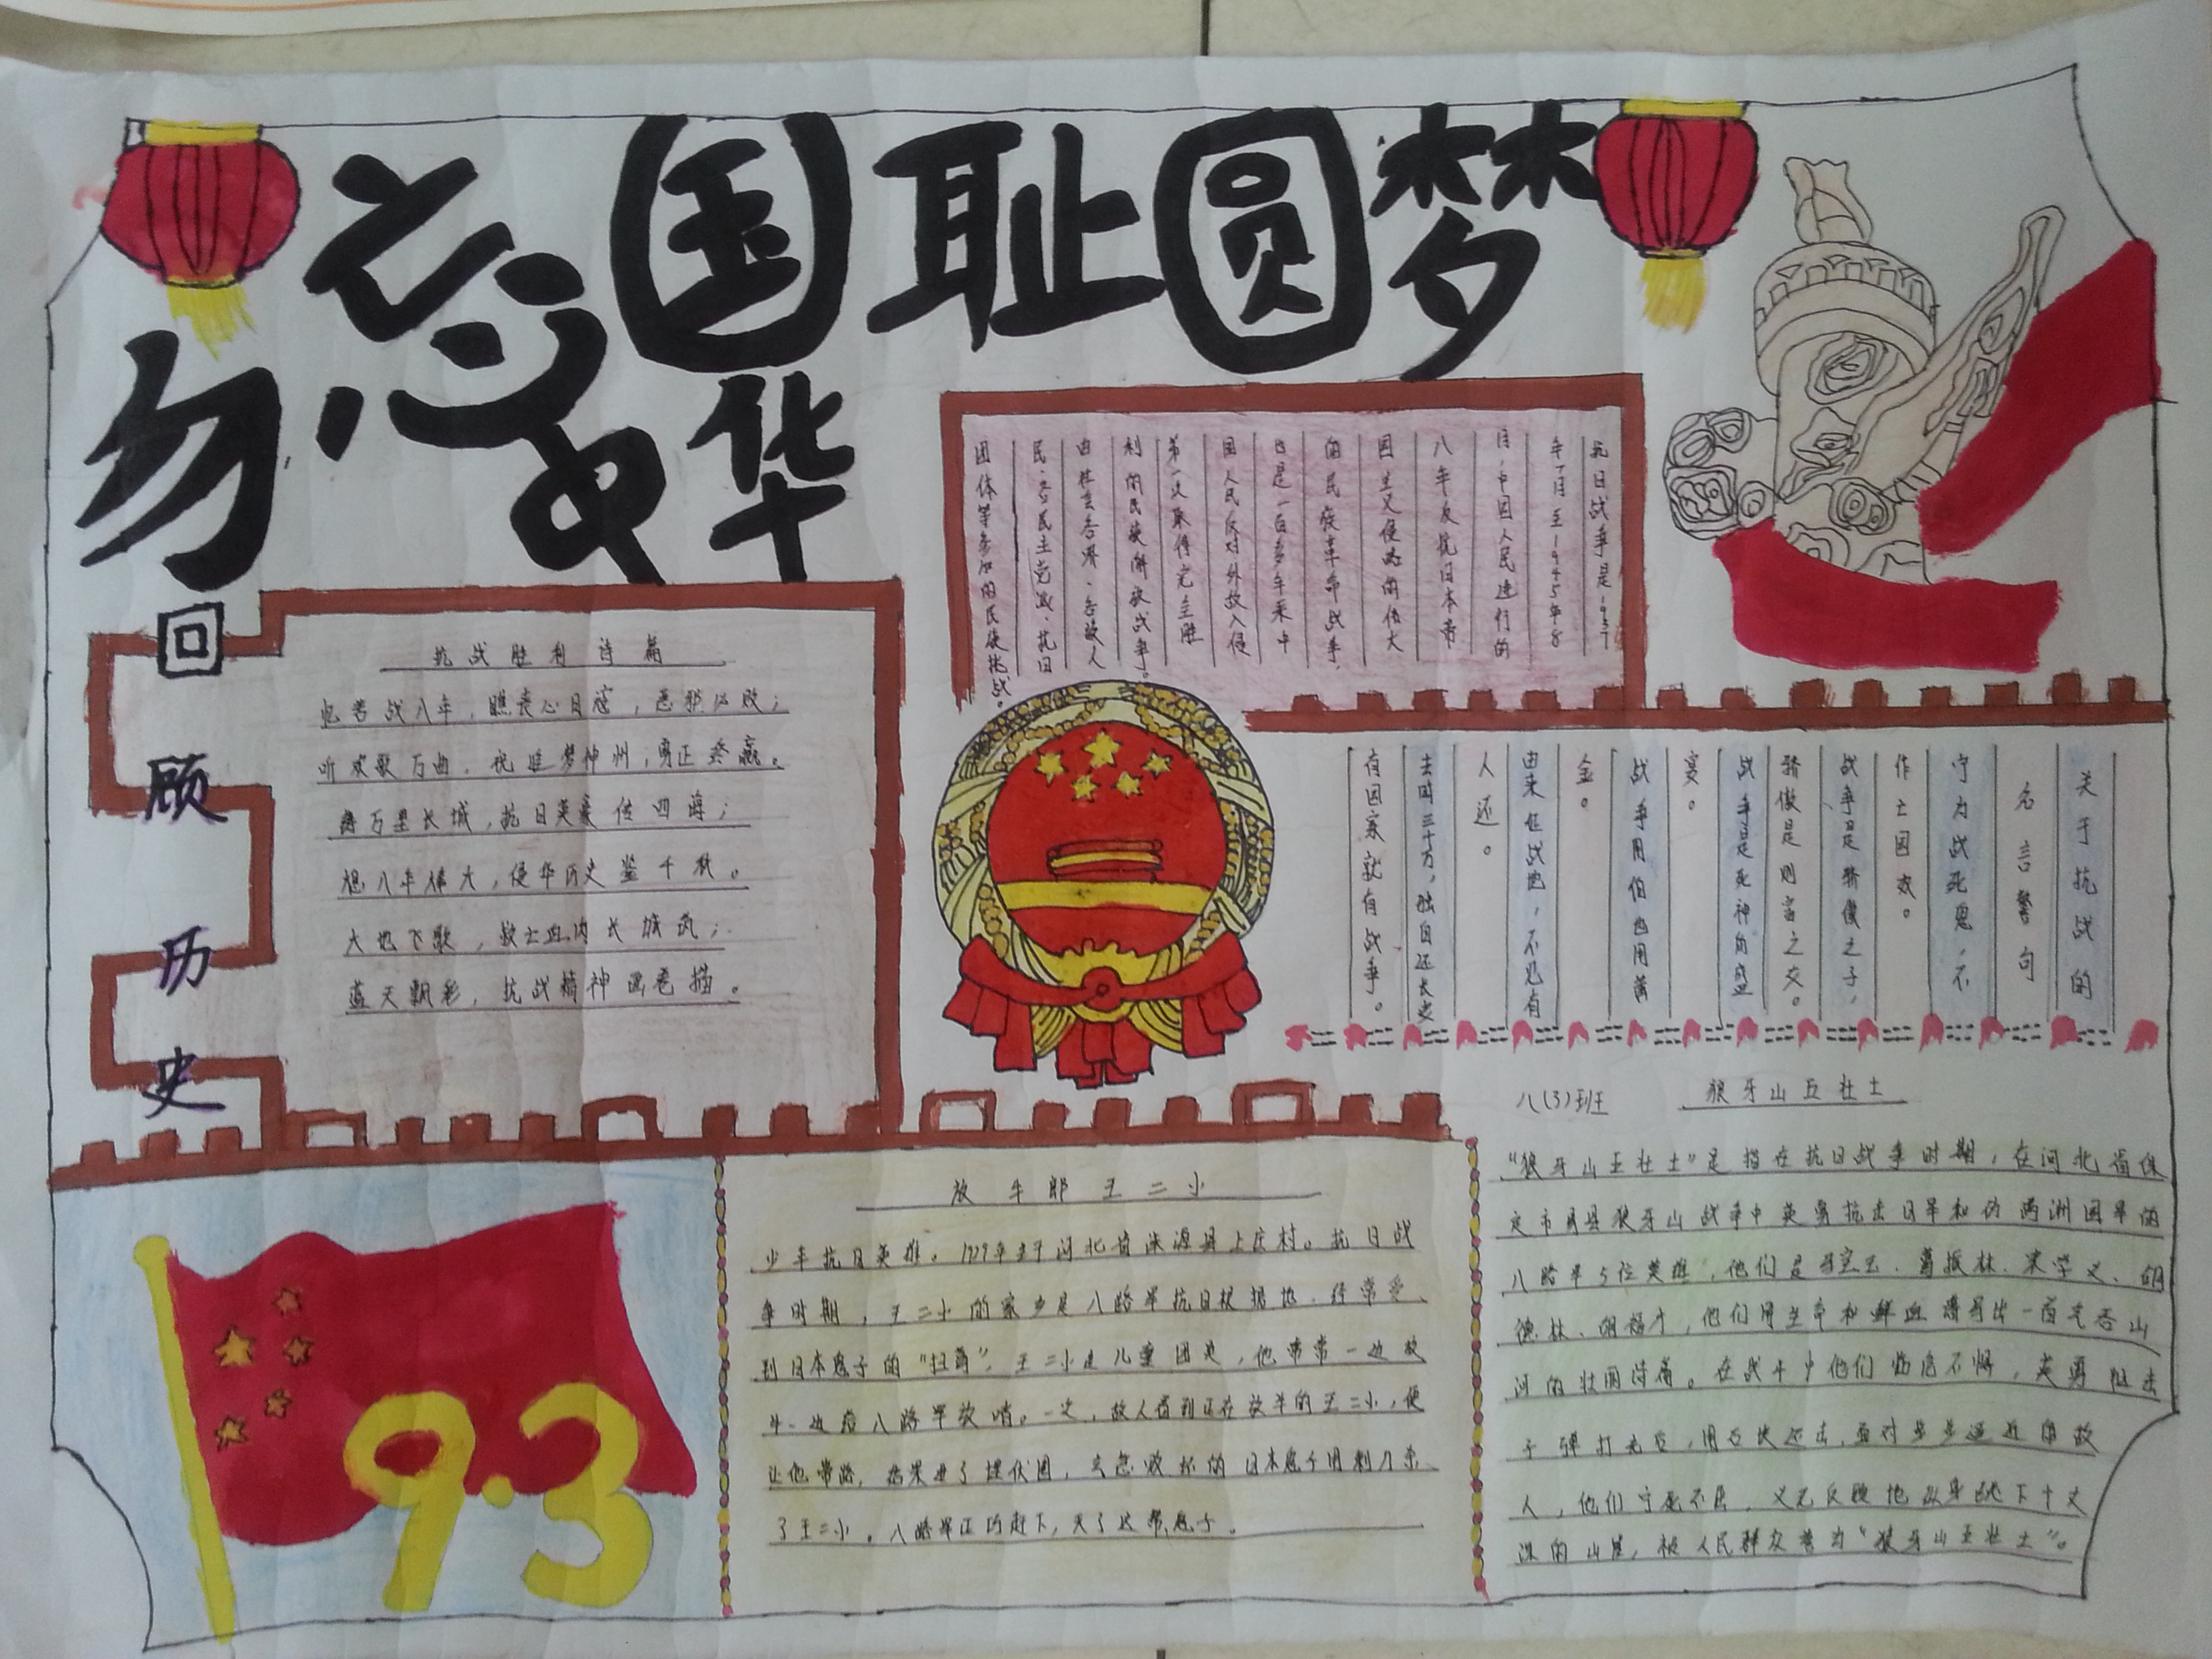 勿忘国耻圆梦
中华
抗日战争是1937
年7月至1945年8
月,中国人民进行的
八年反抗日本帝
国主义侵略的伟大
的民族革命战争,
也是一百多年来中
国人民反对外敌入侵
第一次取得完全胜
利的民族解放战争。
由驻香港、各敌人
民、各民主党派、抗日
团体等参加的民族抗战。
回
顾
历
史
抗战胜利诗篇
忆苦战八年,瞧丧心日寇,恶邪必败;
听欢歌万曲,
万里长城,抗日英豪传四海;
想八年伟大,侵华历史鉴千秋。
大地飞歌,血肉长城筑;
蓝天飘彩,抗战精神画卷描。
关于抗战的
名言警句
宁为战死鬼,不
作亡国奴。
战争是骄傲之子,
骄傲是则富之女。
战争是死神的盛
宴。
战争用伯也用黄
金。
由来征战地,不见有
人还。
去时三十万,独自还长安
有国家就有战争。
八(3)班
狼牙山五壮士
“狼牙山五壮士”是指在抗日战争时期,在河北省保
定市易县狼牙山战争中英勇抗击日军和伪满洲国军的
八路军5位英雄,他们是马宝玉、葛振林、宋学义、胡
德林、胡福才,他们用生命和鲜血谱写出一首气吞山
河的壮丽诗篇。在战斗中他们临危不惧,英勇阻击
子弹打光后,用石块还击,面对步步逼近的敌
人,他们宁死不屈,义无反顾地纵身跳下十丈
深的山崖,被人民群众誉为“狼牙山五壮士”。
放牛郎王二小
少年抗日英雄。1929年生于河北省涞源县上庄村。抗日战
争时期,王二小的家乡是八路军抗日根据地,经常受
到日本鬼子的“扫荡”,王二小是儿童团员,他常常一边放
牛一边给八路军放哨。一次,敌人看到正在放羊的王二小,便
让他带路,结果进了埋伏圈,气急败坏的日本鬼子用刺刀杀
了王二小。八路军正巧赶下,灭了这帮鬼子。
9.3